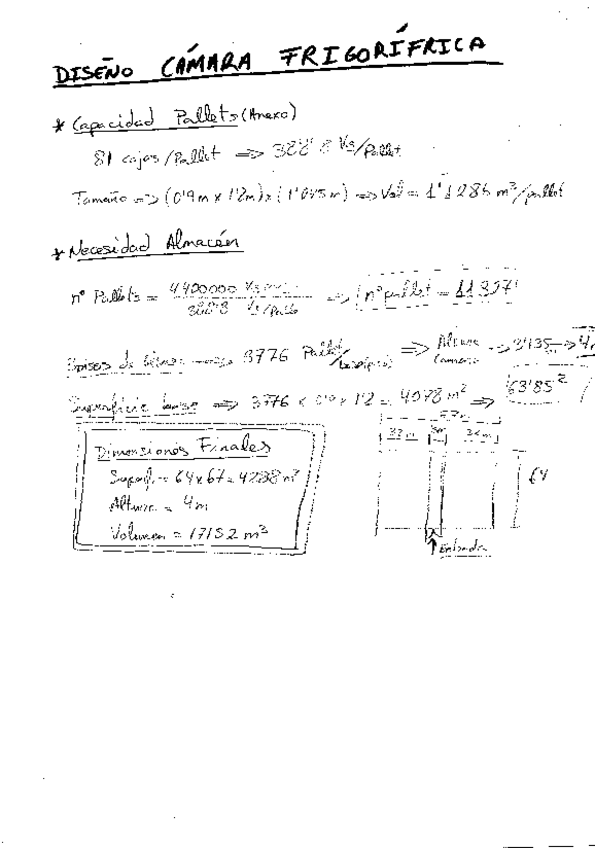 DISEÑO CÁMARA FRIGORÍFRICA
* Capacidad Pallets (Anexo)
81 cajas/Pallet => 388'8 Kg/Pallet
Tamaño => (0'9m x 1'2m) x (1'045m) => Vol = 1'1286 m³/pallet
* Necesidad Almacén
nº Pallets = 4400000 Kg / 388'8 Kg/Pallet => nº pallet = 11317
3776 Pallet => Altura Camara => 3'135 => 4
Superficie base => 3776 x 0'9 x 1'2 = 4078 m² => 63'85²
67m
32m 3m 32m
Dimensiones Finales
Superf. = 64x67 = 4288 m²
64
Altura = 4m
Volumen = 17152 m³
Entrada